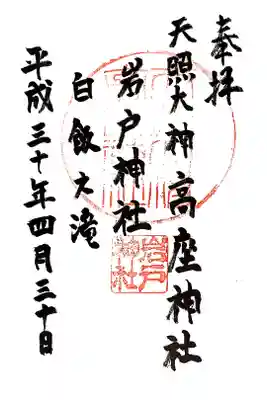 奉拝
天照大神高座神社
岩戸神社
白飯大滝
平成三十年四月三十日
岩戸
神社